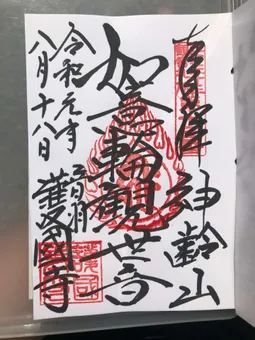 奉拝 神齢山
如意輪觀世音
令和元年
八月十八日
音羽 護國寺